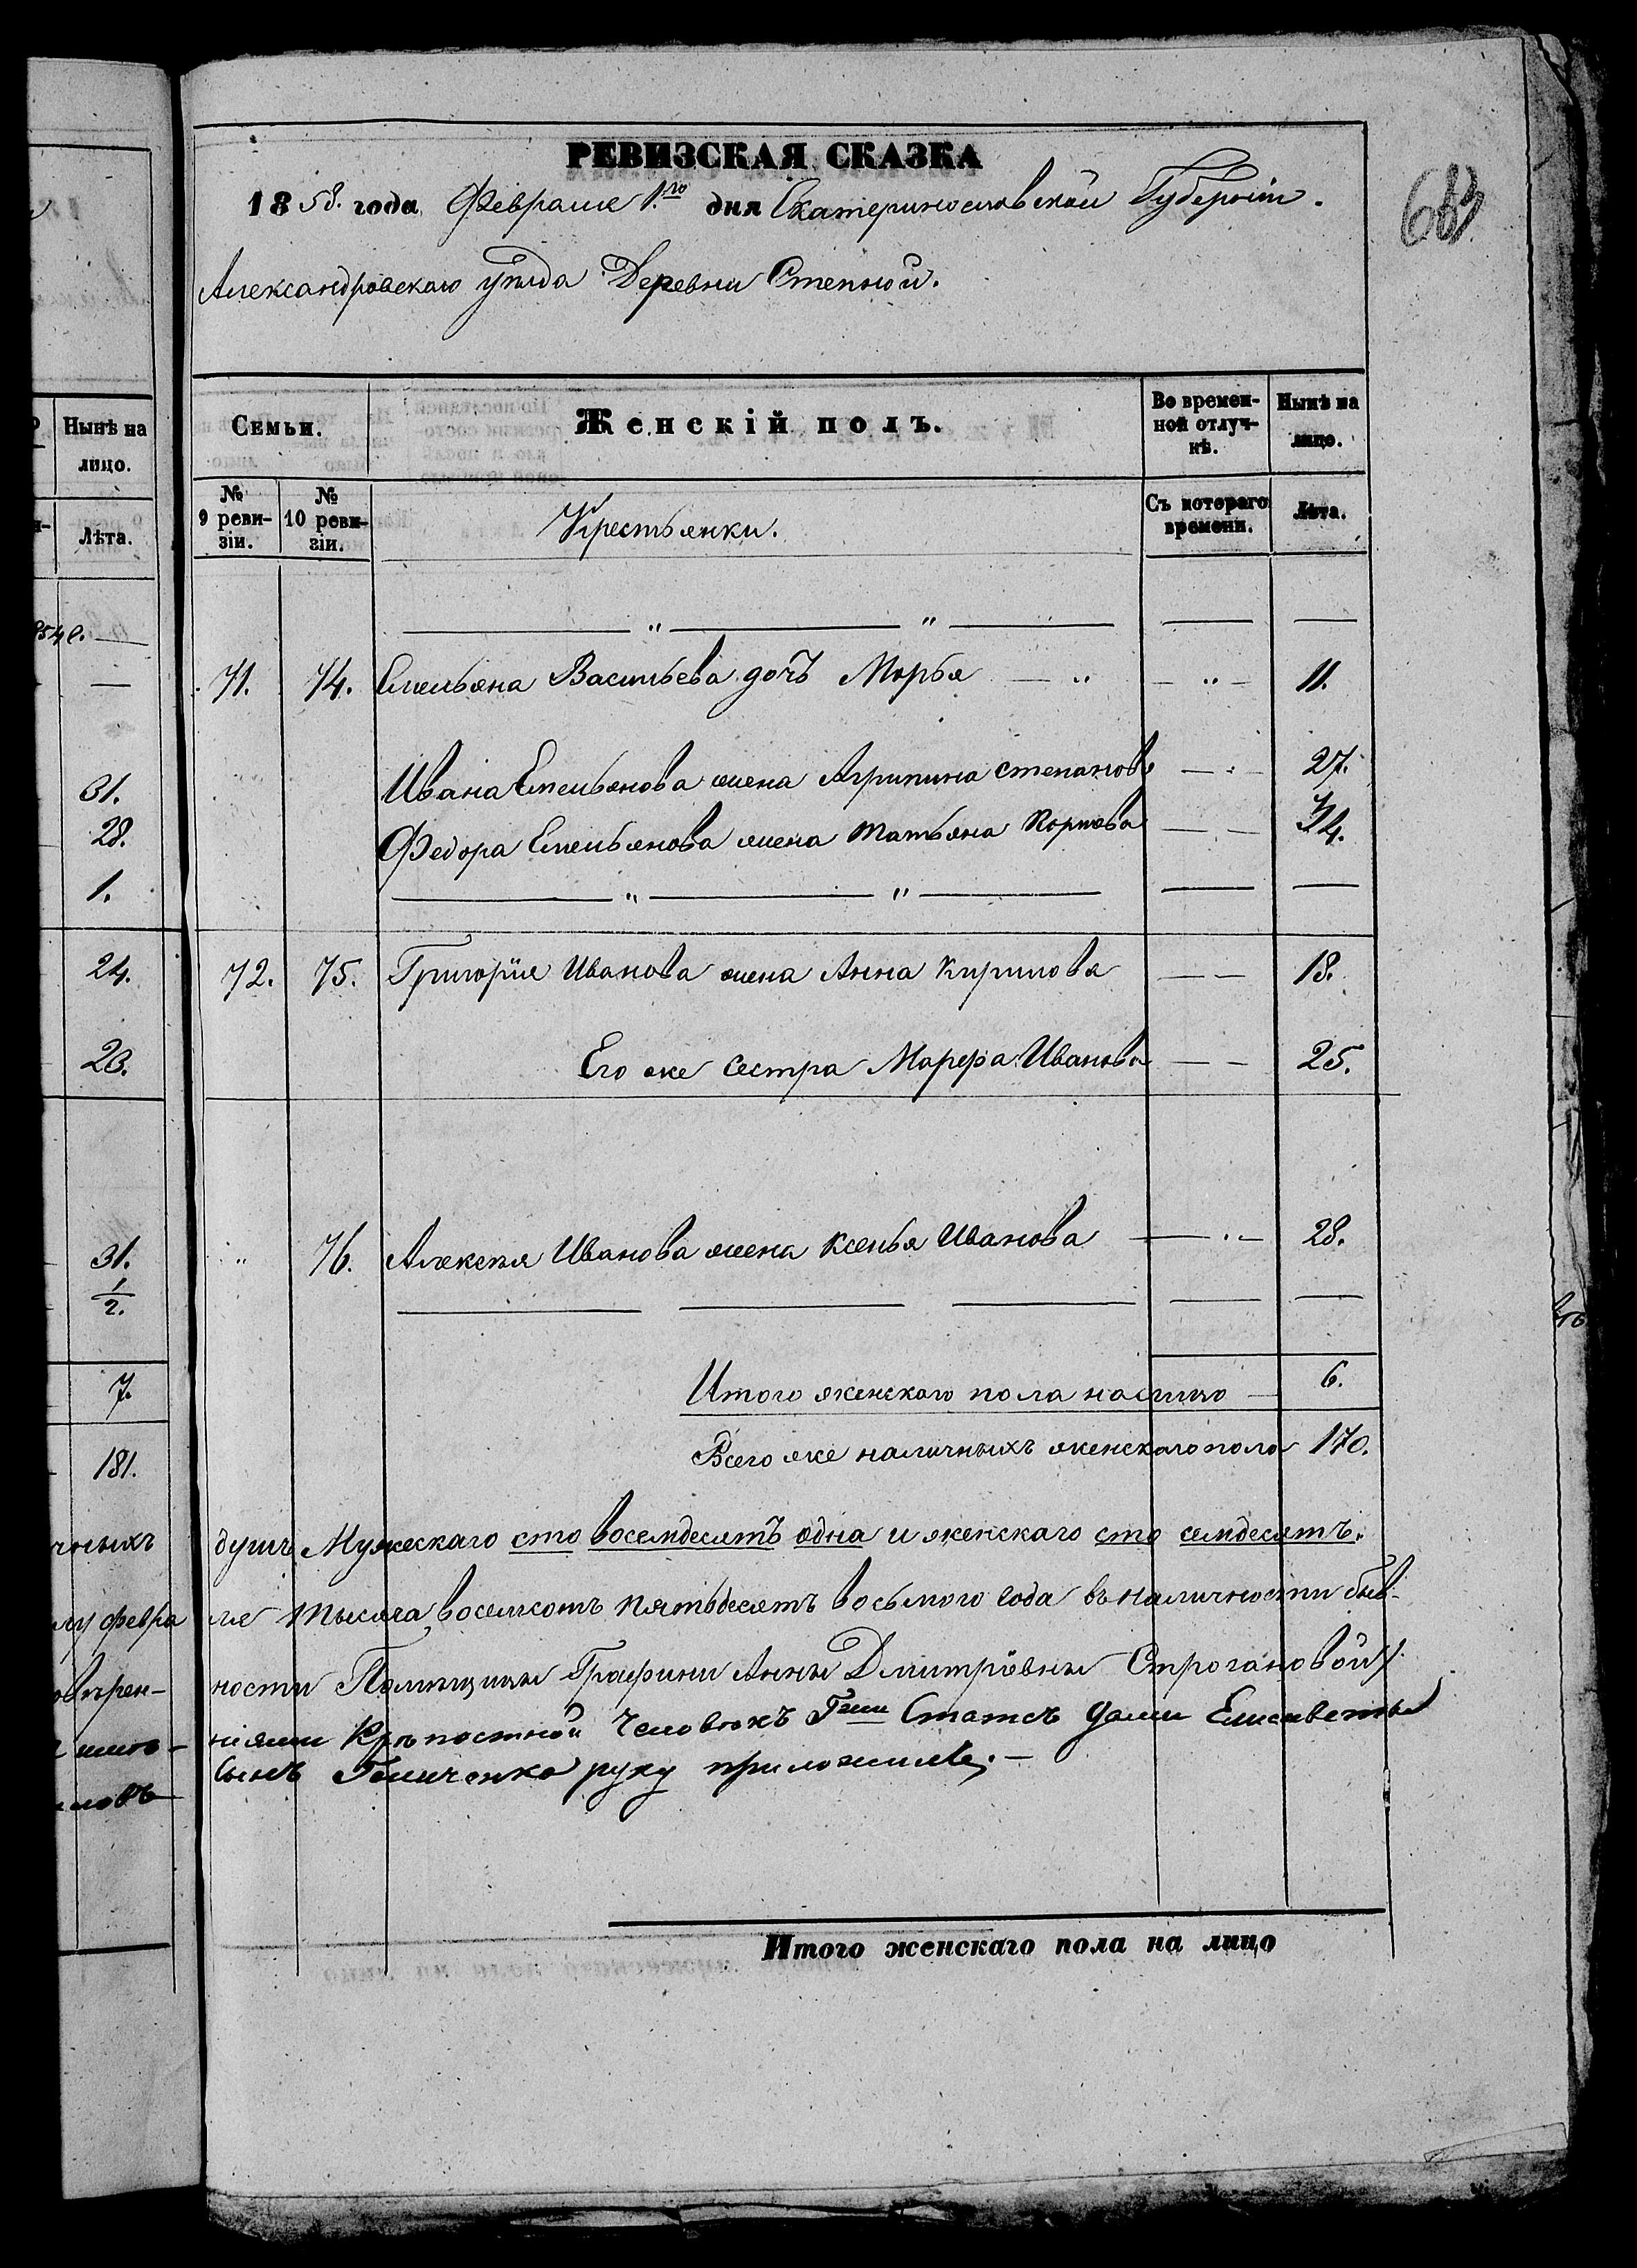 РЕВИЗСКАЯ СКАЗКА
1858. года Февраля 1.го дня Екатеринославской Губерніи.
Александровскаго уѣзда Деревни Степной.
Нынѣ на лицо.
Лѣта.
31.
28.
1.
24.
23.
31.
1/2.
7.
181.
Семьи.
Женскій полъ.
Во временной отлучкѣ.
Нынѣ на лицо.
№ 9 ревизіи.
№ 10 ревизіи.
Крестьянки.
Съ котораго времени.
Лѣта.
71. 74. Емельяна Васильева дочь Марья 11.
Ивана Емельянова жена Агрипина Степанова 27.
Федора Емельянова жена Татьяна Карпова
72. 75. Григорія Иванова жена Анна Кирилова 18.
Его же сестра Марфа Иванова 25.
" 76. Алексѣя Иванова жена Ксенья Иванова 28.
Итого женскаго пола налицо 6.
Всего же наличныхъ женскаго пола 170.
чныхъ душъ Мужескаго сто восемдесятъ одна и женскаго сто семдесятъ.
му февраля тысяча восемсотъ пятьдесятъ восьмого года въ наличности быв-
ности Помѣщицы Графини Анны Дмитріевны Строгановой
ніями Крѣпостной Человѣкъ Гжи Статсъ Дамы Елисаветы
сынъ руку приложилъ.
Итого женскаго пола на лицо